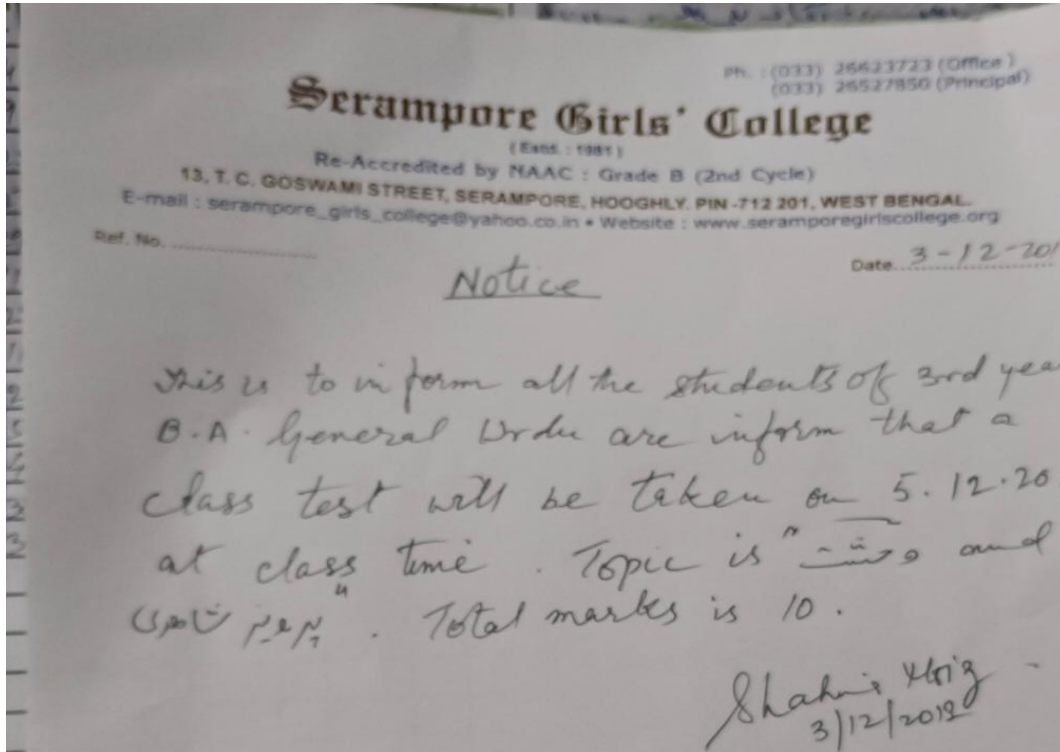 Ph. : (033) 26623723 (Office)
(033) 26527850 (Principal)
Serampore Girls' College
(Estd. : 1981)
Re-Accredited by NAAC : Grade B (2nd Cycle)
13, T. C. GOSWAMI STREET, SERAMPORE, HOOGHLY. PIN -712 201, WEST BENGAL.
E-mail : serampore_girls_college@yahoo.co.in • Website : www.seramporegirlscollege.org
Ref. No. ....................
Date. 3-12-201
Notice
This is to inform all the students of 3rd yea
B.A. General Urdu are inform that a
class test will be taken on 5.12.20
at class time. Topic is "وحشت and
پرویز شاہدی". Total marks is 10.
3/12/2019